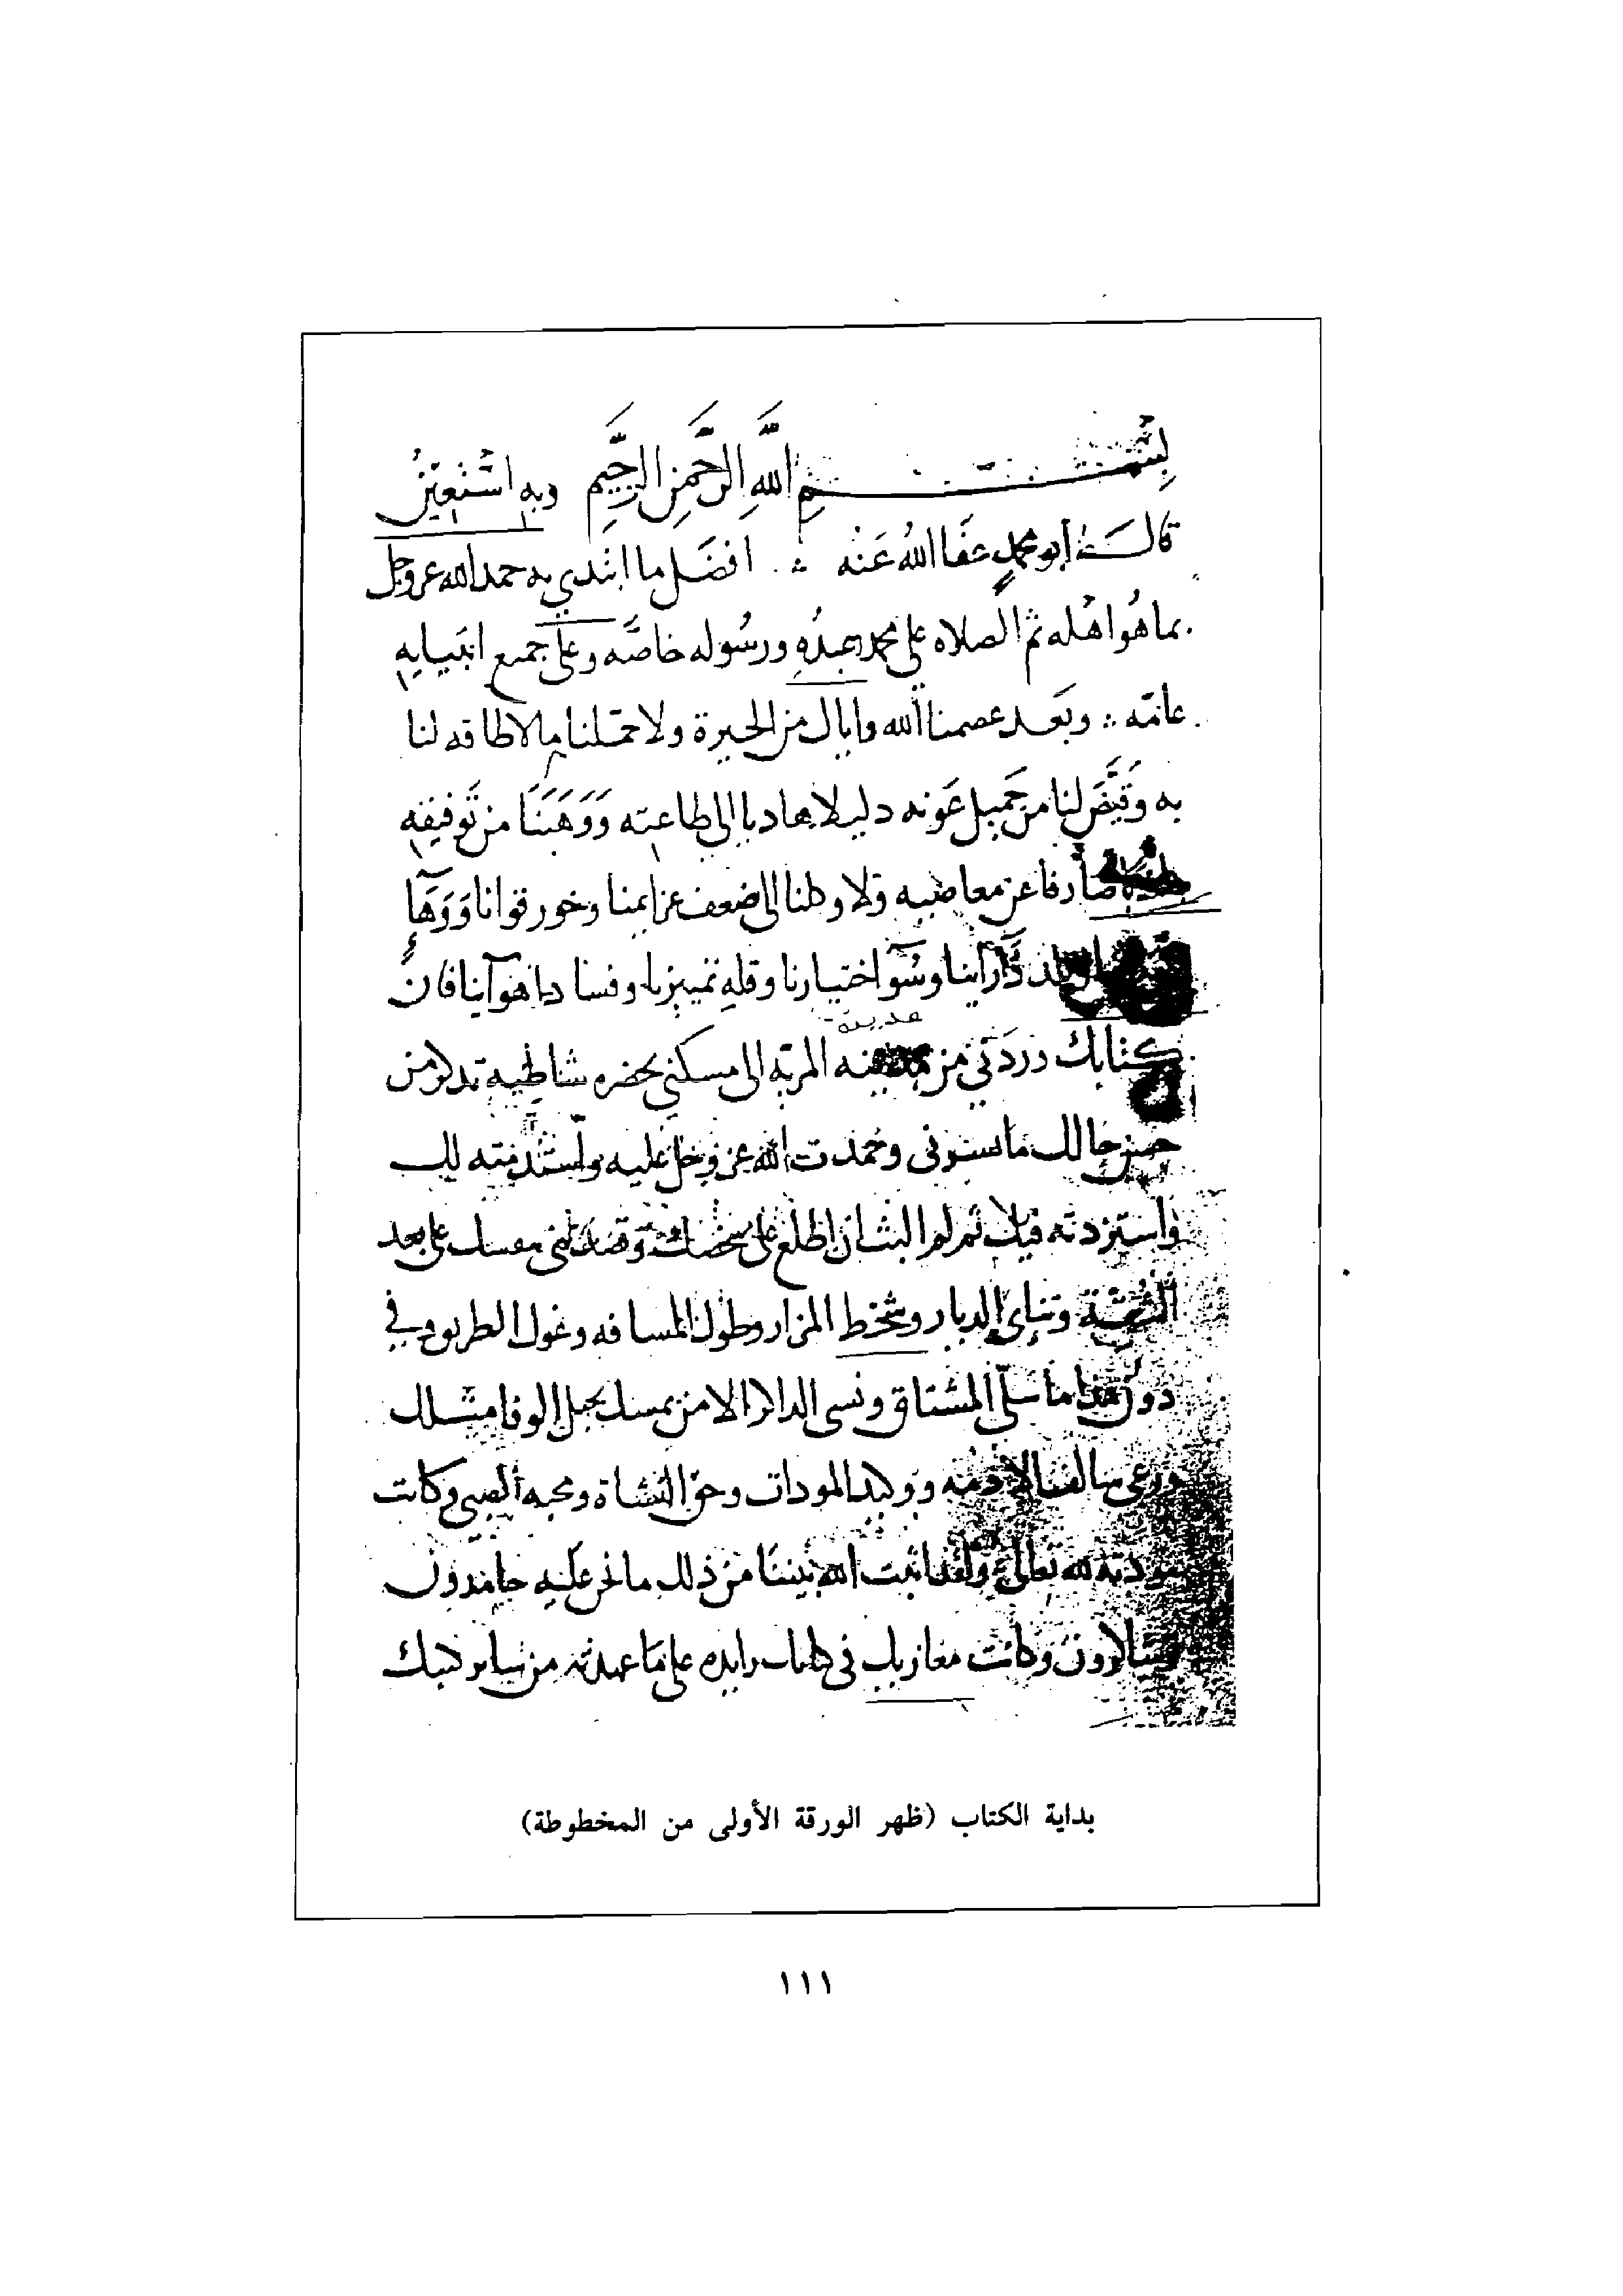 بِسْمِ اللَّهِ الرَّحْمَنِ الرَّحِيمِ وبه اسْتَعِين
قال أبو محمدٍ عفا اللهُ عَنْه ∴ افضَل ما ابتدي به حمد الله عز وجل
بما هُو اهْله ثم الصلاه على محمد عبدِهِ ورسُوله خاصَّه وعلى جميع انبيايه
عامّه ∴ وبَعد عصمنا الله واياك من الحيرة ولا حمّلنا ما لا طاقه لنا
به وقَيَّضَ لنا من جَميل عَونه دليلا هاديا الى طاعته وَوَهَبَنَا من تَوفيقه
صارفا عن معاصيه ولا وكلنا الى ضعف عزايمنا وخور قوانا وَوَهَآءِ
آراينا وسُوٓ اختيارنا وقلهِ تمييزنا وفساد اهوآينا فان
كتابك وردَني من مدينه المريّه الى مسكني بحضره شاطبه تذكر من
مدينة
حسن حالك ما يسرني وحَمدت الله عز وجل عليه واستَدمته لك
واستزدته فيك ثم لم البث ان اطلع على شخصك وقصدتني بنفسك على بعد
الشقّة وتناي الديار وشحْط المزار وطول المسافه وغول الطريق وفي
دون هذا ما سلّى المشتاق ونسى الذاكر الا من تمسك بحبل الوفا مثلك
ورعى سالف الاذمّه ووكيد المودات وحقّ النشاة ومحبه الصبى وكانت
مودته لله تعالى ولقد اثبت الله بيننا من ذلك ما نحن عليه حامدون
وشاكرون وكانت مغازيك في كتابك زايده على ما عهدته من ساير كتبك
بداية الكتاب (ظهر الورقة الأولى من المخطوطة)
١١١